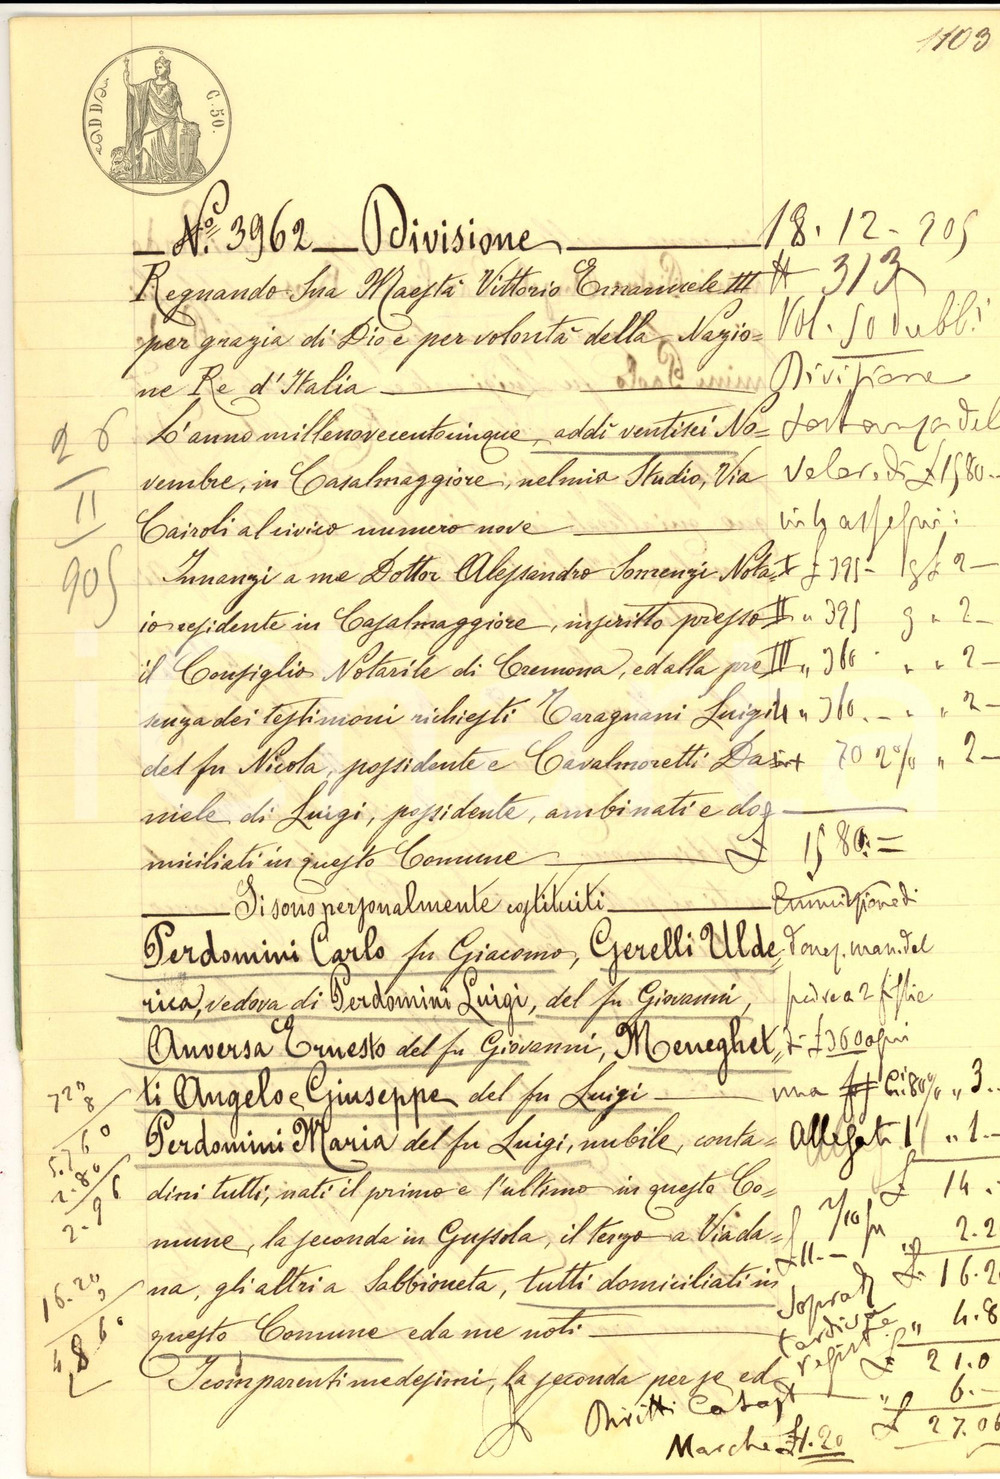 1103
C. 50.
N.º 3962 Divisione
Regnando Sua Maestà Vittorio Emanuele III
per grazia di Dio e per volontà della Nazio=
ne Re d'Italia
L'anno millenovecentocinque, addì ventisei No=
vembre, in Casalmaggiore, nel mio Studio, Via
Cairoli al civico numero nove
Innanzi a me Dottor Alessandro Somenzi Nota=
io residente in Casalmaggiore, inscritto presso
il Consiglio Notarile di Cremona, ed alla pre
senza dei testimoni richiesti Taragnani Luigi
del fu Nicola, possidente e Cavalmoretti Da
niele di Luigi, possidente, ambi nati e do
miciliati in questo Comune
Si sono personalmente costituiti
Perdomini Carlo fu Giacomo, Gerelli Ulde
rica, vedova di Perdomini Luigi, del fu Giovanni,
Anversa Ernesto del fu Giovanni, Meneghet
ti Angelo e Giuseppe del fu Luigi
Perdomini Maria del fu Luigi, nubile, conta=
dini tutti, nati il primo e l'ultimo in questo Co=
mune, la seconda in Gussola, il terzo a Viada=
na, gli altri a Sabbioneta, tutti domiciliati in
questo Comune e da me noti
I comparenti medesimi, la seconda per se ed
26
11
905
720
8
5.760
2.80
2.96
16.20
3
4860
18.12.905
# 313
Vol. 50 Pubbl:
Divisione
sostanza del
valore di £ 1580
in 5 assegni:
I £ 395 - g £ 2-
II " 395 g " 2-
III " 360 " " 2-
" 360 - " " 2-
70 2% " 2-
£ 1580.=
£ 360 ogni
" 3.
Allegati 1 " 1.-
£ 14.
" 2.2
£ 16.20
Sopratt
tardiva
registr
" 4.8
£ 21.0
Diritti Catast " 6.-
Marche £ 1.20 £ 27.06